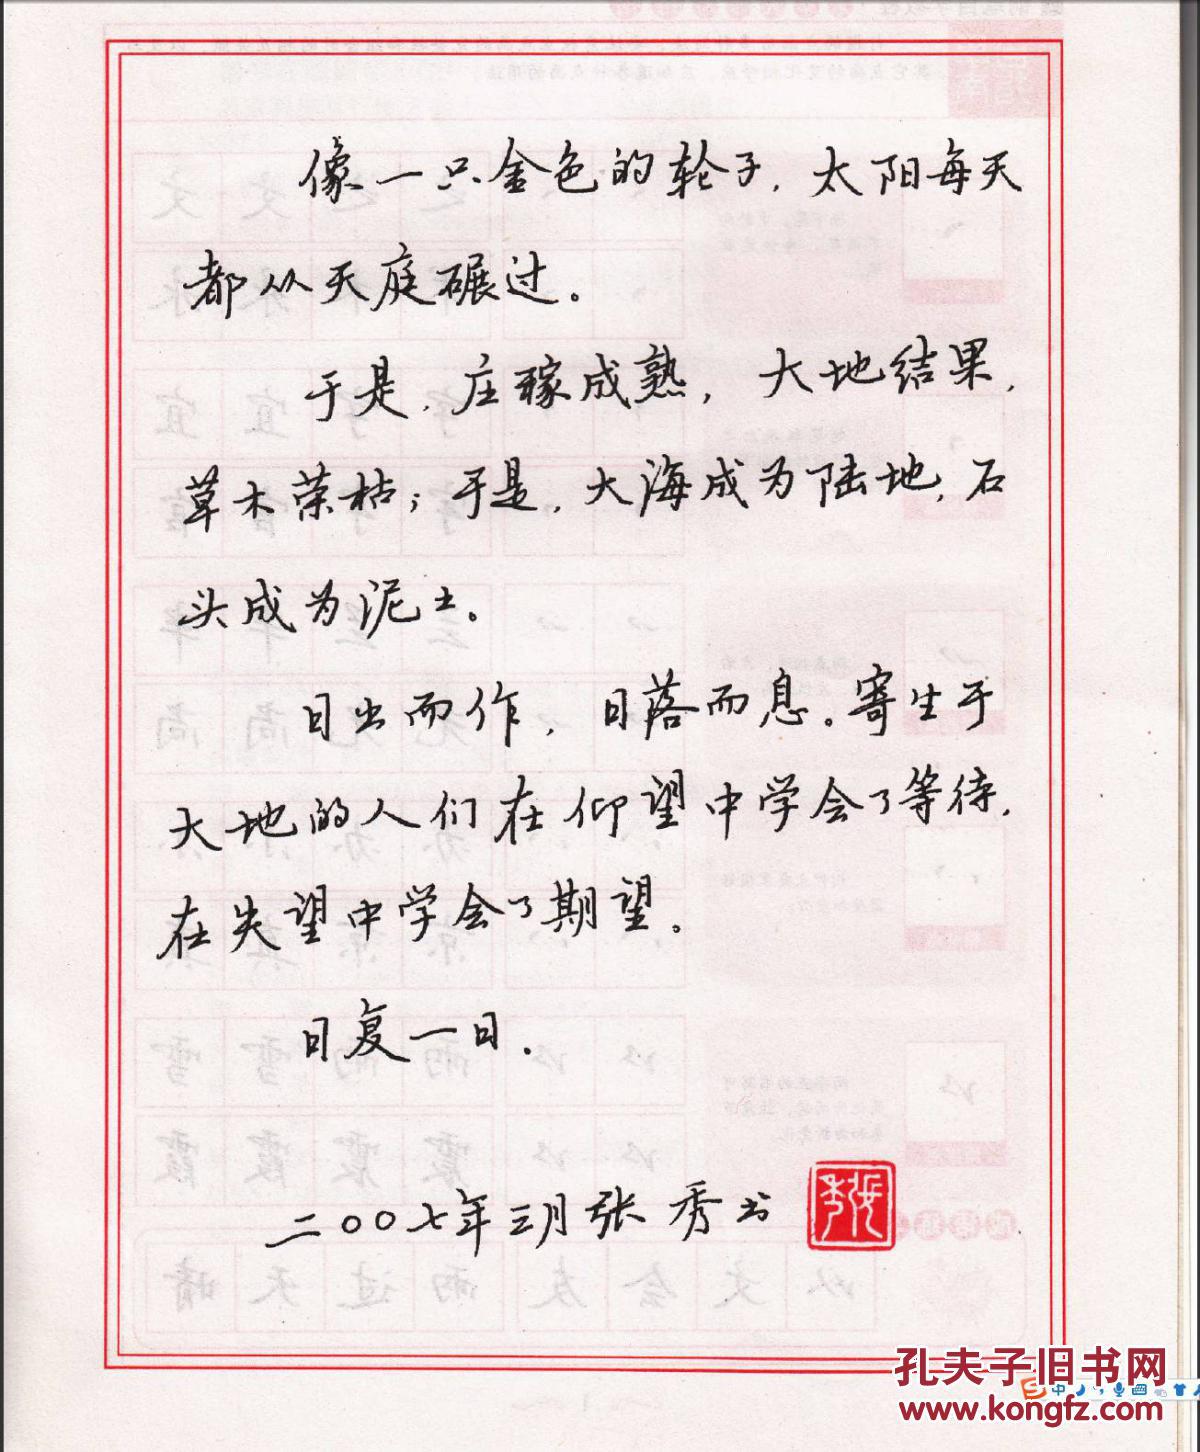 像一只金色的轮子，太阳每天
都从天庭碾过。
于是，庄稼成熟，大地结果，
草木荣枯；于是，大海成为陆地，石
头成为泥土。
日出而作，日落而息。寄生于
大地的人们在仰望中学会了等待，
在失望中学会了期望。
日复一日．
二〇〇七年三月张秀书
孔夫子旧书网
www.kongfz.com